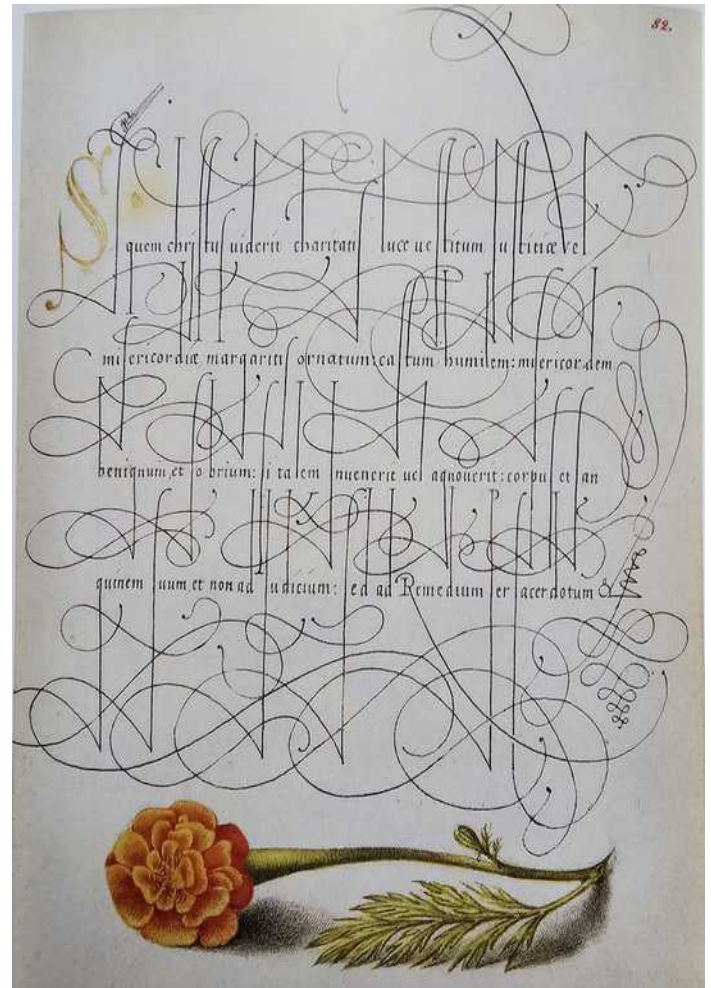 82.
Si quem christus uiderit charitatis luce uestitum iustitiæ vel
misericordiæ margaritis ornatum: castum humilem: misericordem
benignum, et sobrium: si talem inuenerit uel agnouerit: corpus et san
guinem suum et non ad iudicium: sed ad Remedium per sacerdotum